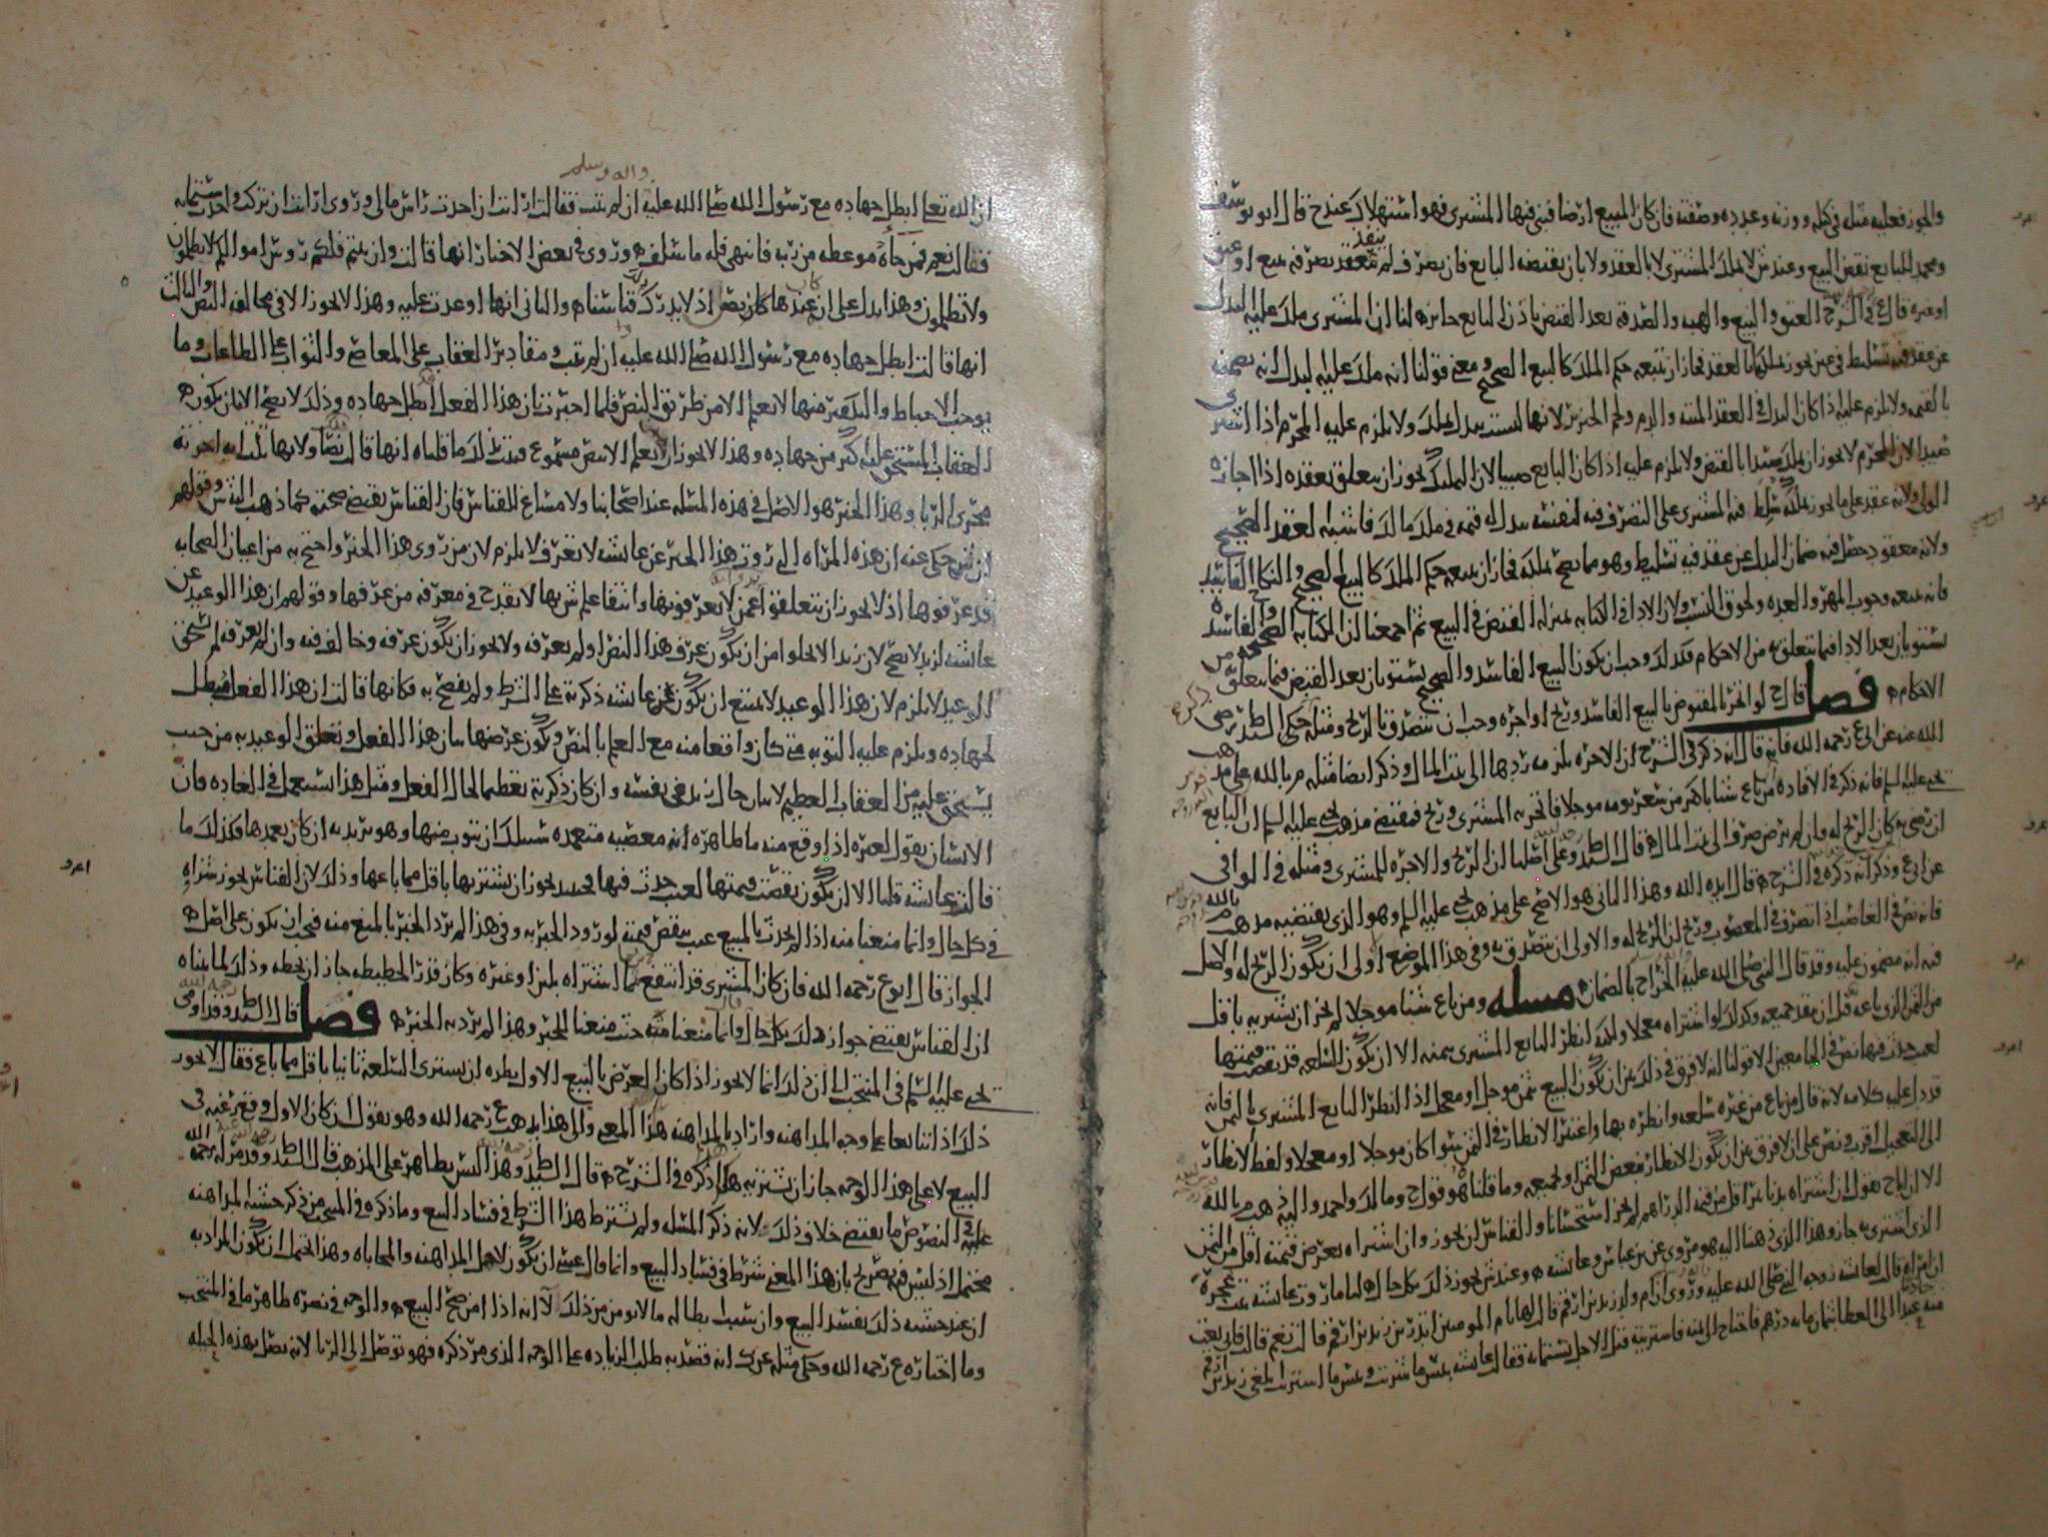 والجوز فعليه مثله في كيله ووزنه وعدده وصفته فان كان المبيع ارضا فبنى فيها المشتري فهو استهلاك عند ح قال ابو يوسف
ومحمد للبايع نقض البيع وعند ش لا يملك المشتري لا بالعقد ولا بان يقبضه البايع فان تصرف لم ينفذ تصرفه ببيع او عتق
او غيره قال في الشرح العتق والبيع والهبه والصدقه بعد القبض باذن البايع جايزه لنا ان المشتري ملك عليه البدل
عن عقد فيه تسليط في عين يجوز تملكها بالعقد فجاز ان يتبعه حكم الملك كالبيع الصحيح ومعنى قولنا انه ملك عليه البدل انه يضمنه
بالقيمه ولا يلزم عليه اذا كان البدل في العقد الميته والدم ولحم الخنزير لانها ليست ببدل يملك ولا يلزم عليه المحرم اذا اشترى
صيدا لان المحرم لا يجوز ان يملك صيدا بالقبض ولا يلزم عليه اذا كان البايع صبيا لان التمليك يجوز ان يتعلق بعقده اذا اجازه
الولي ولانه عقد على ما يجوز تملكه سلط فيه المشتري على التصرف فيه لنفسه ببدل له قيمه في ملك مالك فاشبه العقد الصحيح
ولانه معقود حصل فيه ضمان البدل عن عقد فيه تسليط وهو مما يصح تملكه فجاز ان يتبعه حكم الملك كالبيع الصحيح والنكاح الفاسد
فانه يتبعه وجوب المهر والعده ولحوق النسب ولان الاداء في الكتابه بمنزله القبض في البيع ثم اجمعنا ان الكتابه الصحيحه والفاسده
يستويان بعد الاداء فيما يتعلق به من الاحكام فكذلك وجب ان يكون البيع الفاسد والصحيح يستويان بعد القبض فيما يتعلق من
الاحكام فصل قال ح لو اتجر بالمقبوض بالبيع الفاسد وربح او اجره وجب ان يتصدق بالربح ومثله حكى السيد رضي
الله عنه عن ابي ع رحمه الله فانه قال انه ذكر في الشرح ان الاجره يلزمه ردها الى بيت المال وذكر ايضا مثله م بالله على مذهب
يحيى عليه السلم فانه ذكر في الافاده من باع شيئا باكثر من سعر يومه موجلا فاتجر به المشتري وربح فمقتضى مذهب يحيى عليه السلم ان البايع
ان رضي به كان الربح له وان لم يرض صرف الى بيت المال قال السيد وعلى اصلنا ان الربح والاجره للمشتري ومثله في الوافي
عن ابي ع وذكر انه ذكره في الشرح قال ايده الله وهذا الثاني هو الاصح على مذهب يحيى عليه السلم وهو الذي يقتضيه مذهب م بالله
فانه نص في الغاصب اذا تصرف في المغصوب وربح ان الربح له والاولى ان يتصدق به وفي هذا الموضع اولى ان يكون الربح له والاصل
فيه انه مضمون عليه وقد قال النبي صلى الله عليه الخراج بالضمان مسله ومن باع شيئا موجلا لم يجز ان يشتريه باقل
من الثمن الذي باعه قبل ان ينقد جميعه وكذلك لو اشتراه معجلا ولكنه انظر البايع المشتري بثمنه الا ان يكون السلعه قد نقصت قيمتها
لعيب حدث فيها نص في الجامعين الا قولنا انه لا فرق في ذلك بين ان يكون البيع بثمن موجل او معجل اذا انظر البايع المشتري بالثمن فانه
قد دل عليه كلامه لانه قال من باع من غيره سلعه وانظره بها واعتبر الانظار في الثمن سوا كان موجلا او معجلا ولفظ الانظار
الى التعجيل اقرب ونص على ان لا فرق بين ان يكون الانظار ببعض الثمن او بجميعه وما قلناه هو قول ح ومالك واحمد واليه ذهب م بالله
الا ان ح يقول ان اشتراه بدنانير اقل من قيمه الدراهم لم يجز استحسانا والقياس ان يجوز وان اشتراه بعرض قيمته اقل من الثمن
الذي اشتري به جاز وهذا الذي ذهبنا اليه هو مروي عن بن عباس وعائشه وعند ش يجوز ذلك بكل حال لنا ما روت عائشه بنت عجره
ان امراه قالت لعائشه زوجه النبي صلى الله عليه وروي ان ام ولد زيد بن ارقم قال لها يا ام المومنين اتدرين زيد بن ارقم قالت نعم قالت فاني بعت
منه عبدا الى العطا بثمانمايه درهم فاحتاج الى ثمنه فاشتريته قبل الاجل بستمايه فقالت عائشه بئس ما شريت وبئس ما اشتريت ابلغي زيد بن ارقم
واله وسلم
ان الله تعالى ابطل جهاده مع رسول الله صلى الله عليه ان لم يتب فقالت ارايت ان اخذت راس مالي وروي ارايت ان تركت واخذت ستمايه
فقالت نعم فمن جاه موعظه من ربه فانتهى فله ما سلف وروي في بعض الاخبار انها قالت وان تبتم فلكم روس اموالكم لا تظلمون
ولا تظلمون وهذا يدل على ان عندها كان بنص اذ لا يدرك قياسنا م والثاني انها اوعدت عليه وهذا لا يجوز الا في مخالفه النص والثالث
انها قالت ابطل جهاده مع رسول الله صلى الله عليه ان لم يتب ومقادير العقاب على المعاصي والثواب على الطاعات وما
يوجب الاحباط والتكفير منها لا يعلم الا من طريق النص فلما اخبرت ان هذا الفعل ابطل جهاده وذلك لا يصح الا بان يكون
العقاب المستحق عليه اكبر من جهاده وهذا لا يجوز ان يعلم الا بنص مسموع فثبت بذلك ما قلناه انها قالت نصا ولانها ثلث اجرته
مجرى الربا وهذا الخبر هو الاصل في هذه المسله عند اصحابنا ولا مساغ للقياس فان القياس يقتضي صحته كما ذهب اليه ش وقولهم
ان ش حكي عنه ان هذه المراه التي روت هذا الخبر عن عائشه لا تعرف لا يلزم لان من روى هذا الخبر واحتج به من اعيان الصحابه
قد عرفوها اذ لا يجوز ان يتعلقوا عمن لا يعرفونها وانتفا علم ش بها لا يقدح في معرفه من عرفها وقولهم ان هذا الوعيد عن
عائشه لزيد لا يصح لان زيدا لا يخلوا من ان يكون عرف هذا النص او لم يعرفه ولا يجوز ان يكون عرفه وخالف فيه وان لم يعرفه لم يستحق
الوعيد لا يلزم لان هذا الوعيد لا يمتنع ان يكون عن عائشه ذكرته على الشرط ولم يفصح به فكانها قالت ان هذا الفعل مبطل
لجهاده ويلزم عليه التوبه متى كان واقعا منه مع العلم بالنص ويكون غرضها بيان هذا الفعل وتعلق الوعيد به من حيث
يستحق عليه من العقاب العظيم لا بيان حال زيد في نفسه وان كان ذكرته تعظيما لحال الفعل ومثل هذا يستعمل في العاده فان
الانسان يقول لغيره اذا وقع منه ما ظاهره انه معصيه متعمده سبيلك ان تتوب منها وهو يريد به ان كان تعمدها وكذلك ما
قالت عائشه قلنا الا ان يكون نقصت قيمتها لعيب حدث فيها فحينيذ يجوز ان يشتريها باقل مما باعها وذلك لان القياس يجوز شراه
في كل حال وانما منعنا منه اذا لم يحدث بالمبيع عيب ينقص قيمته لورود الخبر به وفي هذا لم يرد الخبر بالمنع منه فيجب ان يكون على اصل
الجواز قال ابو ع رحمه الله فان كان المشتري قد انتفع بما اشتراه بلبن او غيره وكان قدر الحطيطه جاز ان يحطه وذلك لما بيناه
ان القياس يقتضي جواز ذلك بكل حال وانما منعنا منه حيث منعنا الخبر وهذا لم يرد به الخبر فصل قال السيد وقد اومى
يحيى عليه السلم في المنتخب الى ان ذلك انما لا يجوز اذا كان الغرض بالبيع الاول يطره ان يشتري السلعه ثانيا باقل مما باع فقال لا يجوز
ذلك اذا تبايعا على وجه المداهنه واراد بالمداهنه هذا المعنى والى هذا يذهب ع رحمه الله وهو يقول ان كان الاول وقع رغبه في
البيع لا على هذا الوجه جاز ان يشتريه هكذا ذكره في الشرح قال السيد وهذا ليس بظاهر على المذهب قال السيد وقد مر له رحمه الله
عليه في النصوص ما يقتضي خلاف ذلك لانه ذكر المسله ولم يشترط هذا الشرط في فساد البيع وما ذكره في المنتخب من ذكر حشيه المداهنه
محتمل اذ ليس فيه تصريح بان هذا المعنى شرط في فساد البيع وانما قال عسى ان يكون لاهل المداهنه والمحاباه وهذا يحتمل ان يكون المراد به
ان عند حشيه ذلك يفسد البيع وان شيت ابطاله ما لا يومن من ذلك لا انه اذا امن صح البيع والوجه في نصره ظاهر ما في المنتخب
وما اختاره ع رحمه الله وحكى مثله عن ك انه قصد به طلب الزياده على الوجه الذي مر ذكره فهو توصل الى الربا لانه يصل بهذه الحيله